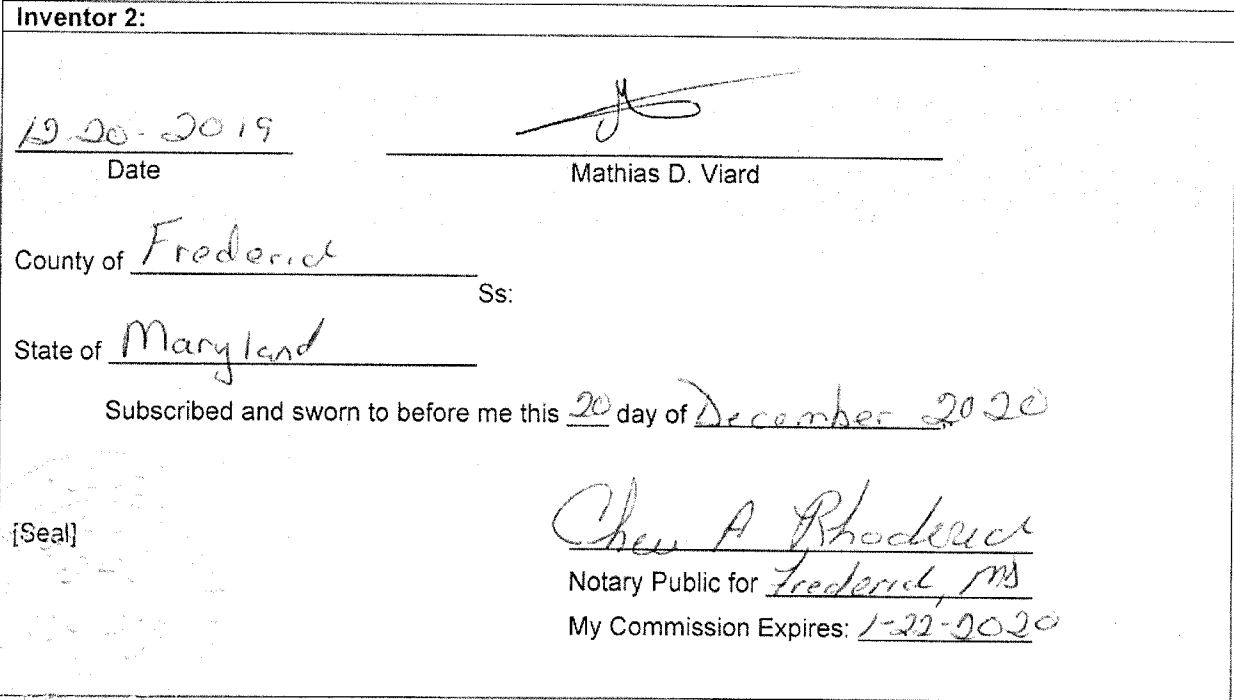 Inventor 2:
12-20-2019
Date
Mathias D. Viard
County of Frederick
Ss:
State of Maryland
Subscribed and sworn to before me this 20 day of December 2020
[Seal]
A Rhoderick
Notary Public for Frederick, MD
My Commission Expires: 1-22-2020